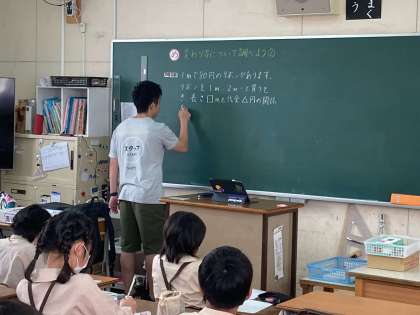 め 変わり方について調べよう②
1mで80円のリボンがあります。
リボンを1m、2m…と買うと
長さ□mと代金△円の関係
スタッフ
う
まく